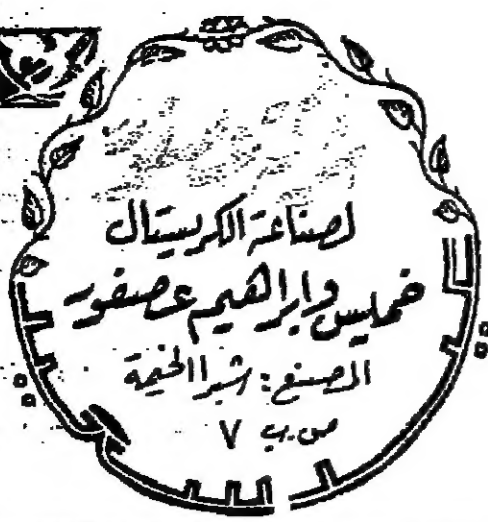 لصناعة الكريستال
خميس وإبراهيم عصفور
المصنع: شبرا الخيمة
ص.ب ٧